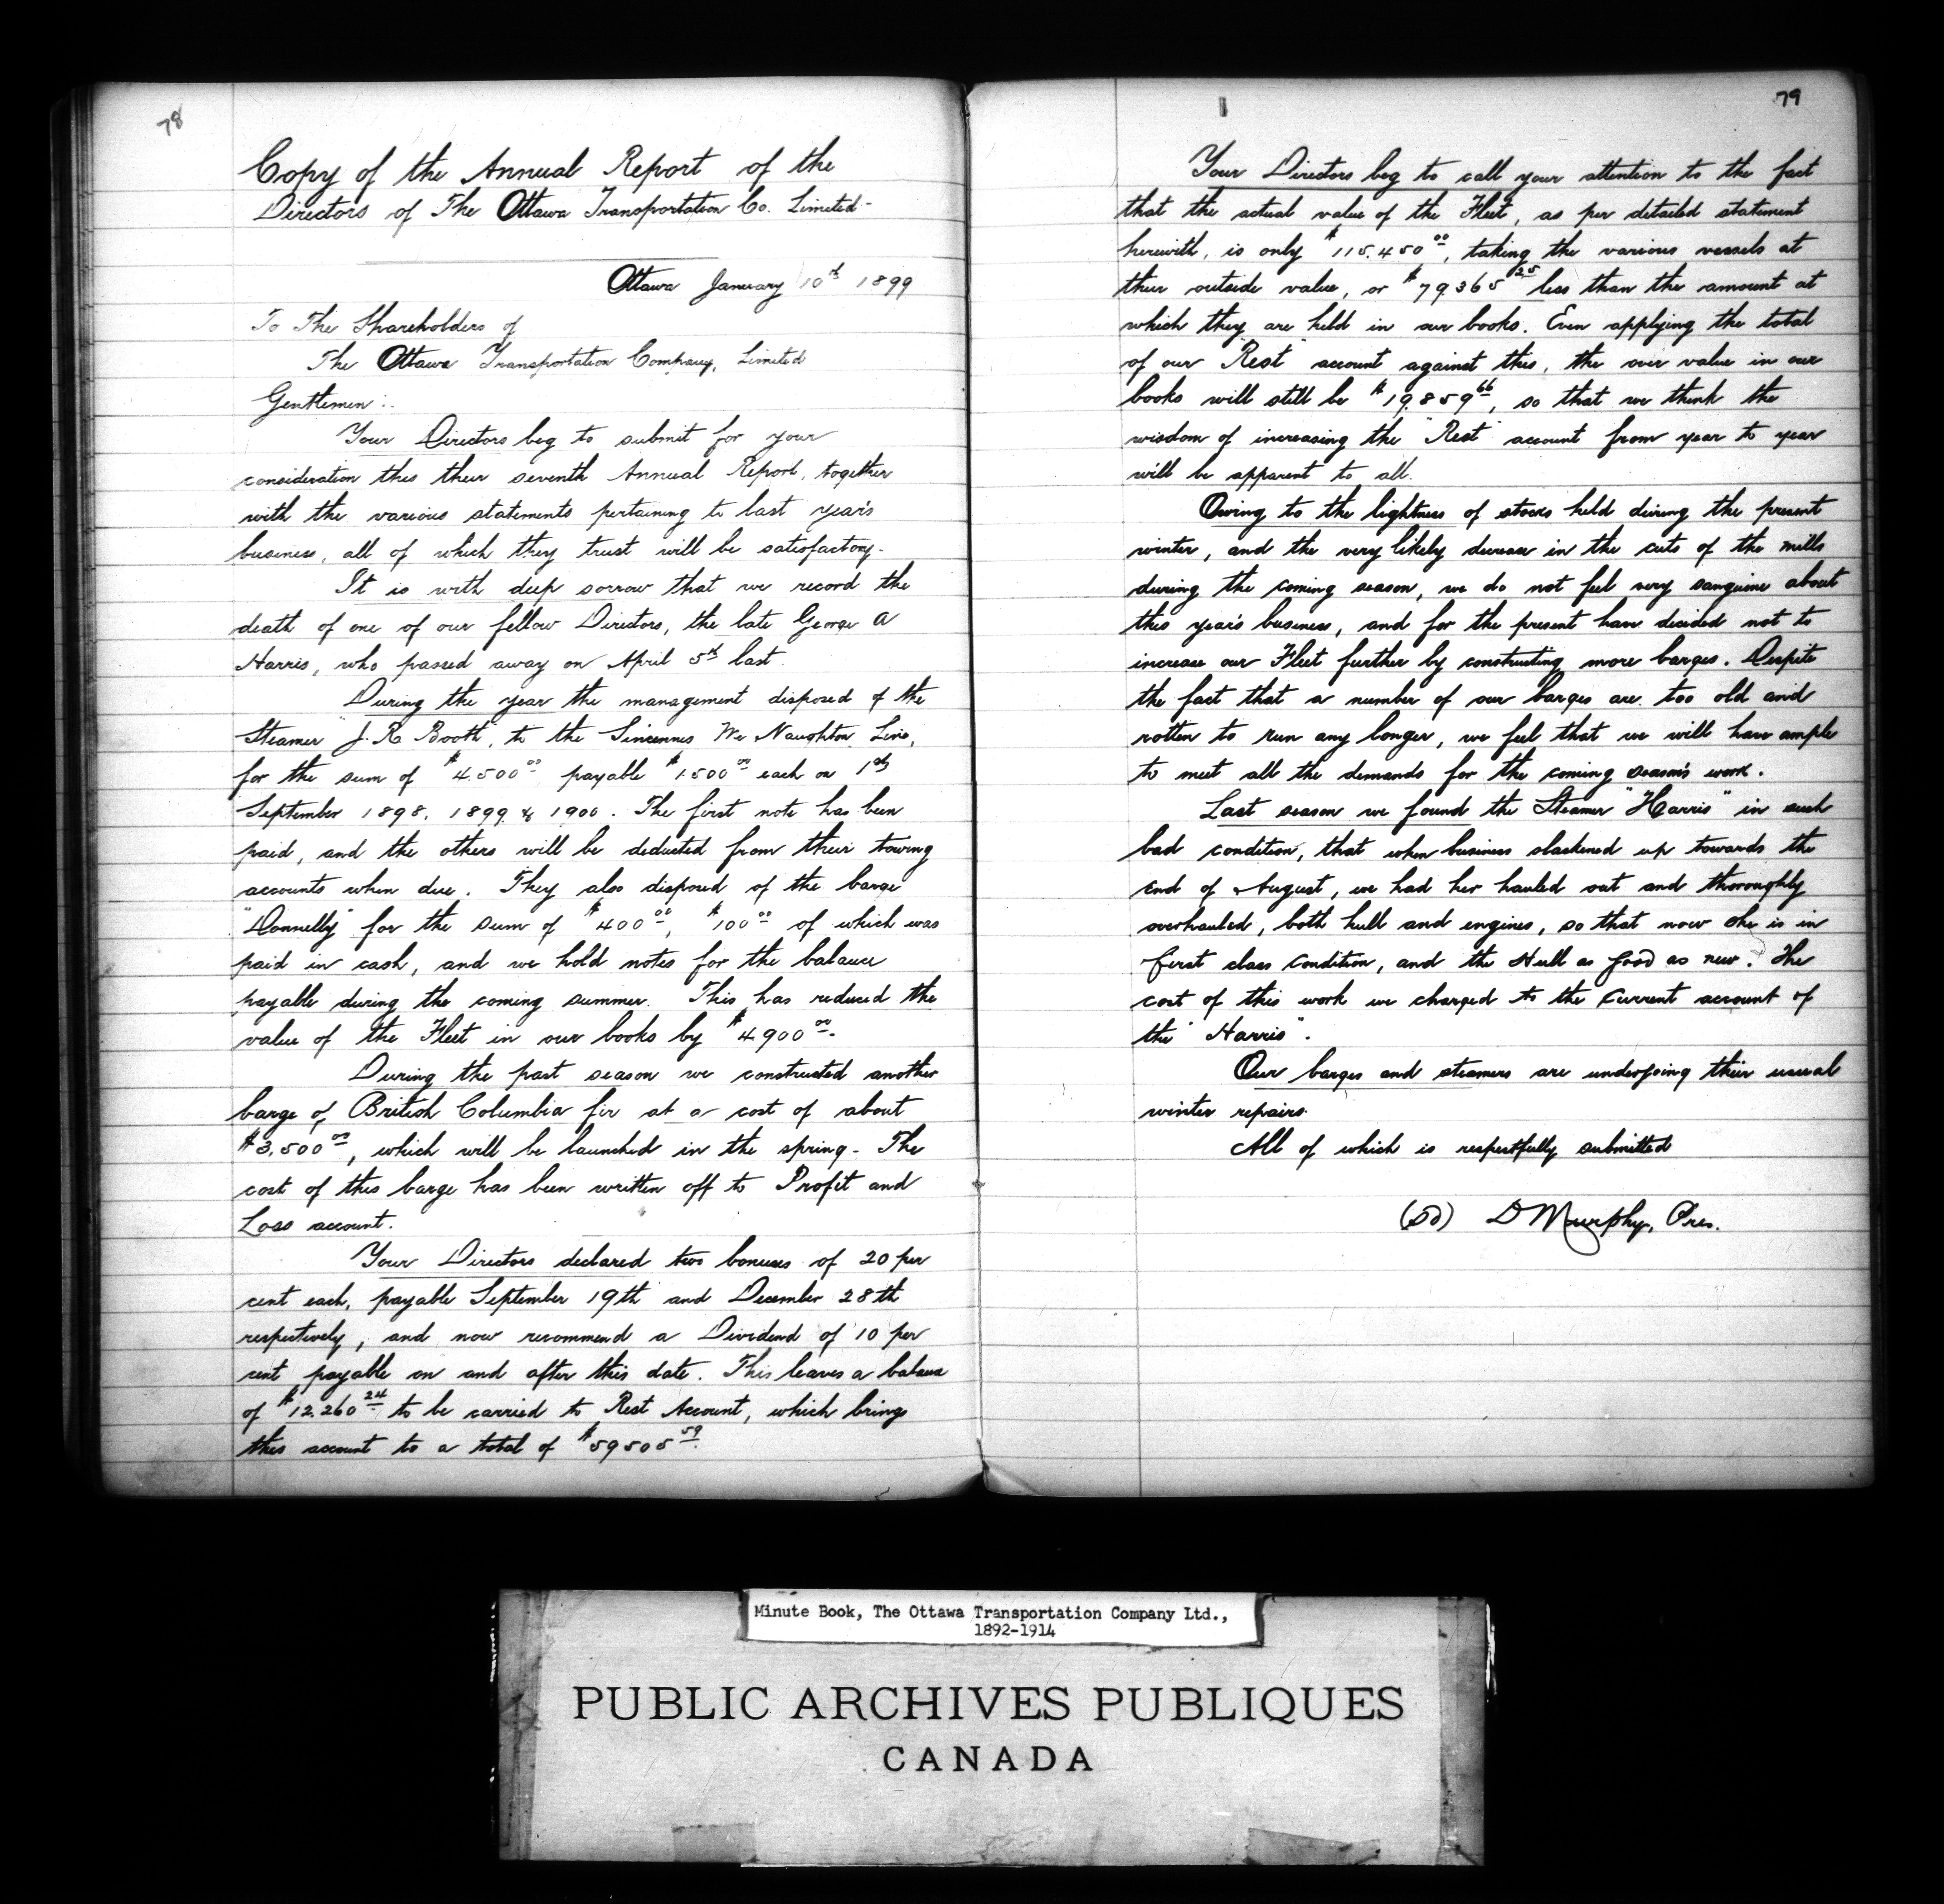 78
Copy of the Annual Report of the
Directors of The Ottawa Transportation Co. Limited-
Ottawa January 10th 1899
To The Shareholders of
The Ottawa Transportation Company, Limited
Gentlemen:.
Your Directors beg to submit for your
consideration this their seventh Annual Report, together
with the various statements pertaining to last year's
business, all of which they trust will be satisfactory.
It is with deep sorrow that we record the
death of one of our fellow Directors, the late George A
Harris, who passed away on April 5th last.
During the year the management disposed of the
Steamer "J. R Booth", to the Sincennes McNaughton Line,
for the sum of $4.500 00 payable $1500 00 each on 1st
September 1898, 1899 & 1900. The first note has been
paid, and the others will be deducted from their towing
accounts when due. They also disposed of the barge
"Donnelly" for the sum of $400 00, $100 00 of which was
paid in cash, and we hold notes for the balance
payable during the coming summer. This has reduced the
value of the Fleet in our books by $4900 00.
During the past season we constructed another
barge of British Columbia fir at a cost of about
$3.500 00, which will be launched in the spring. The
cost of this barge has been written off to Profit and
Loss account.
Your Directors declared two bonuses of 20 per
cent each, payable September 19th and December 28th
respectively, and now recommend a Dividend of 10 per
cent payable on and after this date. This leaves a balance
of $12.260 24 to be carried to Rest Account, which brings
this account to a total of $59505 59.
79
Your Directors beg to call your attention to the fact
that the actual value of the Fleet, as per detailed statement
herewith, is only $115.450 00, taking the various vessels at
their outside value, or $79.365 25 less than the amount at
which they are held in our books. Even applying the total
of our "Rest" account against this, the over value in our
books will still be $19.859 66, so that we think the
wisdom of increasing the "Rest" account from year to year
will be apparent to all.
Owing to the lightness of stocks held during the present
winter, and the very likely decrease in the cuts of the mills
during the coming season, we do not feel very sanguine about
this year's business, and for the present have decided not to
increase our Fleet further by constructing more barges. Despite
the fact that a number of our barges are too old and
rotten to run any longer, we feel that we will have ample
to meet all the demands for the coming season's work.
Last season we found the Steamer "Harris" in such
bad condition, that when business slackened up towards the
end of August, we had her hauled out and thoroughly
overhauled, both hull and engines, so that now she is in
first class condition, and the Hull as good as new. The
cost of this work we charged to the current account of
the "Harris".
Our barges and steamers are undergoing their usual
winter repairs.
All of which is respectfully submitted
(Sd) D Murphy, Pres.
Minute Book, The Ottawa Transportation Company Ltd.,
1892-1914
PUBLIC ARCHIVES PUBLIQUES
CANADA